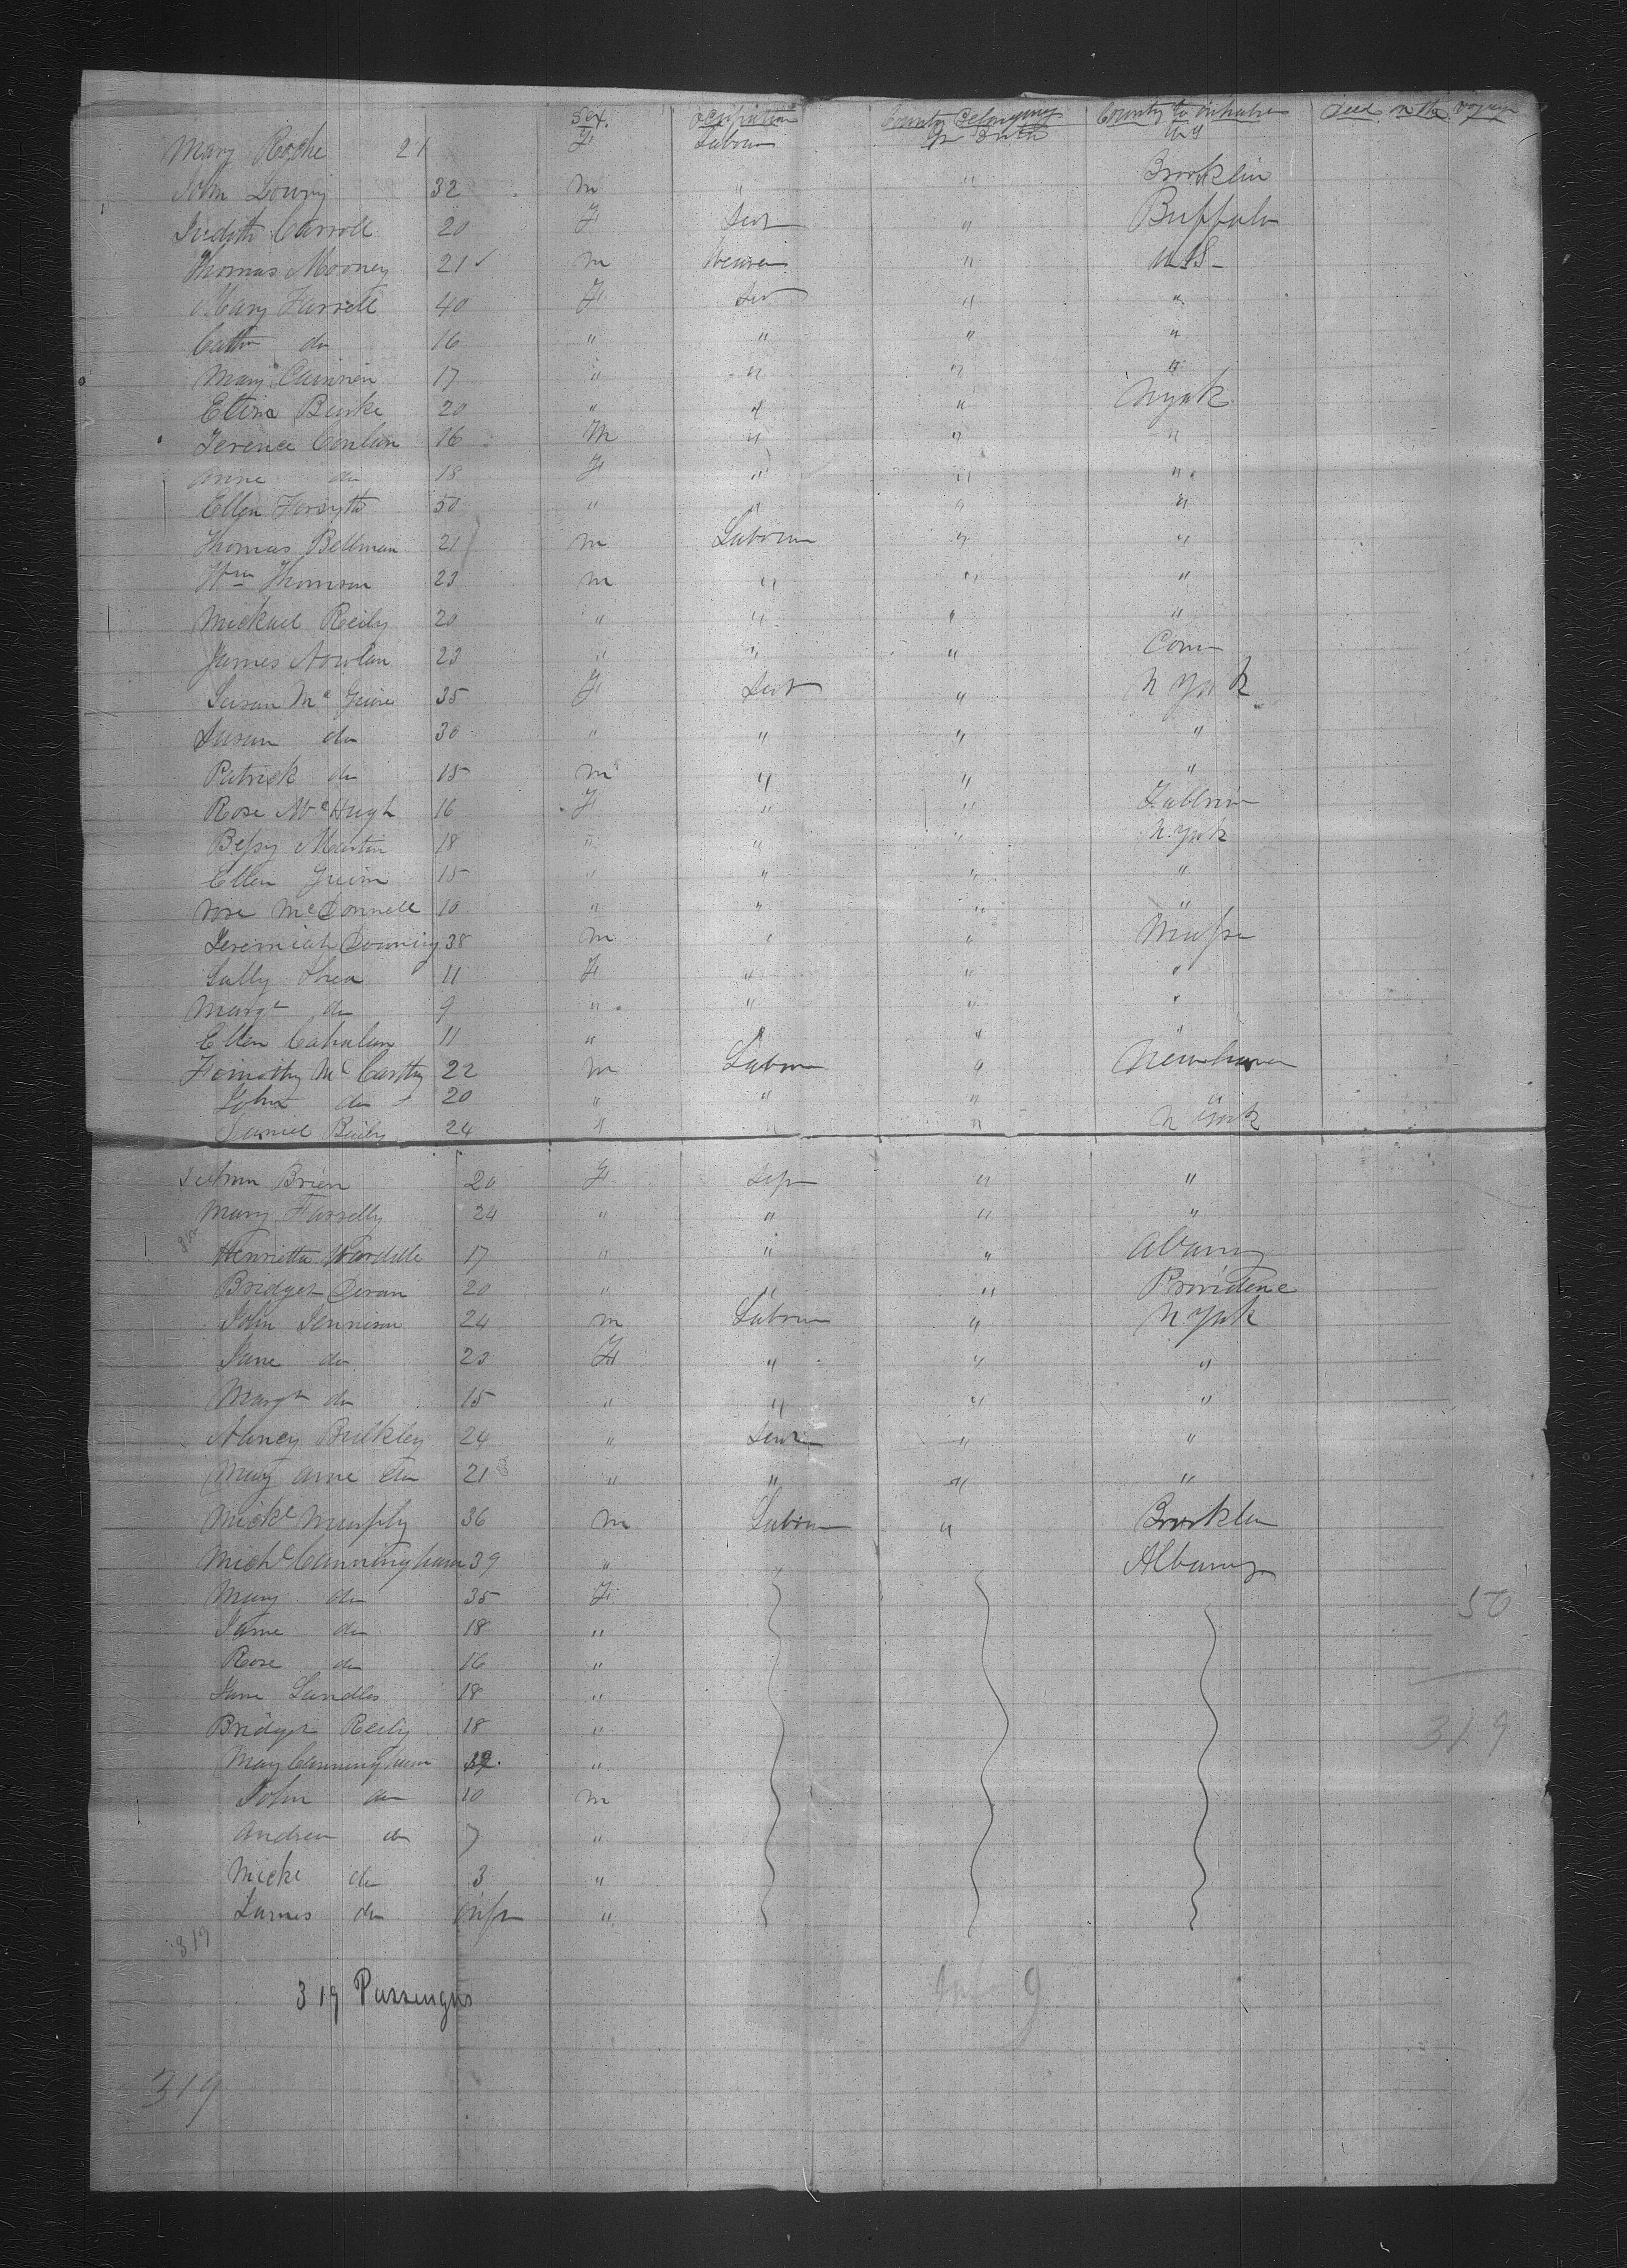 Sex. Occupation Country Belonging Country to inhabit Died on the voyage
Mary Roche 21 F Labour Gr Britn U S
John Downy 32 m " " Brooklin
Judith Carroll 20 F Sert " Buffalo
Thomas Mooney 21 m Weaver " U S
Mary Farrell 40 F Sert " "
Cathn do 16 " " " "
Mary Quinnen 17 " " " "
Eliza Burke 20 " " " N York
Terence Conlan 16 M " " "
Anne do 18 F " " "
Ellen Forsyth 50 " " " "
Thomas Bellman 21 m Labour " "
Wm Thomson 23 m " " "
Michael Reily 20 " " " "
James Nowlan 23 " " " Conn
Susan Mc Guire 35 F Sert " N York
Susan do 30 " " " "
Patrick do 15 m " " "
Rose Mc Hugh 16 F " "
Bessy Martin 18 " " " N. York
Ellen 15 " " " "
Rose McDonnell 10 " " " "
Jeremiah Downing 38 m " "
Sally Shea 11 F " " "
Margt do 9 " " " "
Ellen Cahalan 11 " " " "
Timothy Mc Carthy 22 m Labour " Newhaven
John do 20 " " " "
Daniel Baily 24 " " " N York
Brien 20 F " "
Mary Farrelly 24 " " " "
Henrietta Wardell 17 " " " Albany
Bridget Doran 20 " " " Providence
John Jennison 24 m Labour " N York
Jane do 23 F " " "
Margt do 15 " " " "
Nancy Bulkley 24 " " "
Mary Anne do 21 " " " "
Michl Murphy 36 m Labour " Brooklin
Michl Cunningham 39 " " Albany
Mary do 35 F 50
Jane do 18 "
Rose do 16 "
Jane Sandles 18 "
Bridget Reily 18 " 319
Mary Cunningham 12. "
John do 10 m
Andrew do 7 "
Michl do 3 "
James do Inft "
319
319 Passengers
9
319